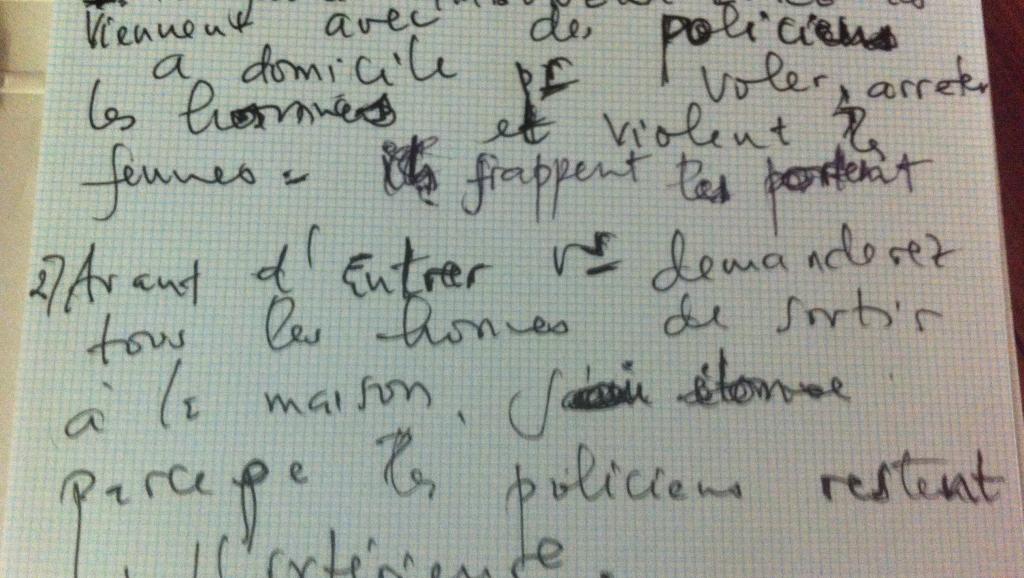 viennent avec des policiens
a domicile pr voler, arreter
les hommes et violent les
femmes = ils frappent les portent
2) Avant d'Entrer vs demanderez
tous les homes de sortir
à la maison. étonne
parce qe les policiens restent
l'extérieure.